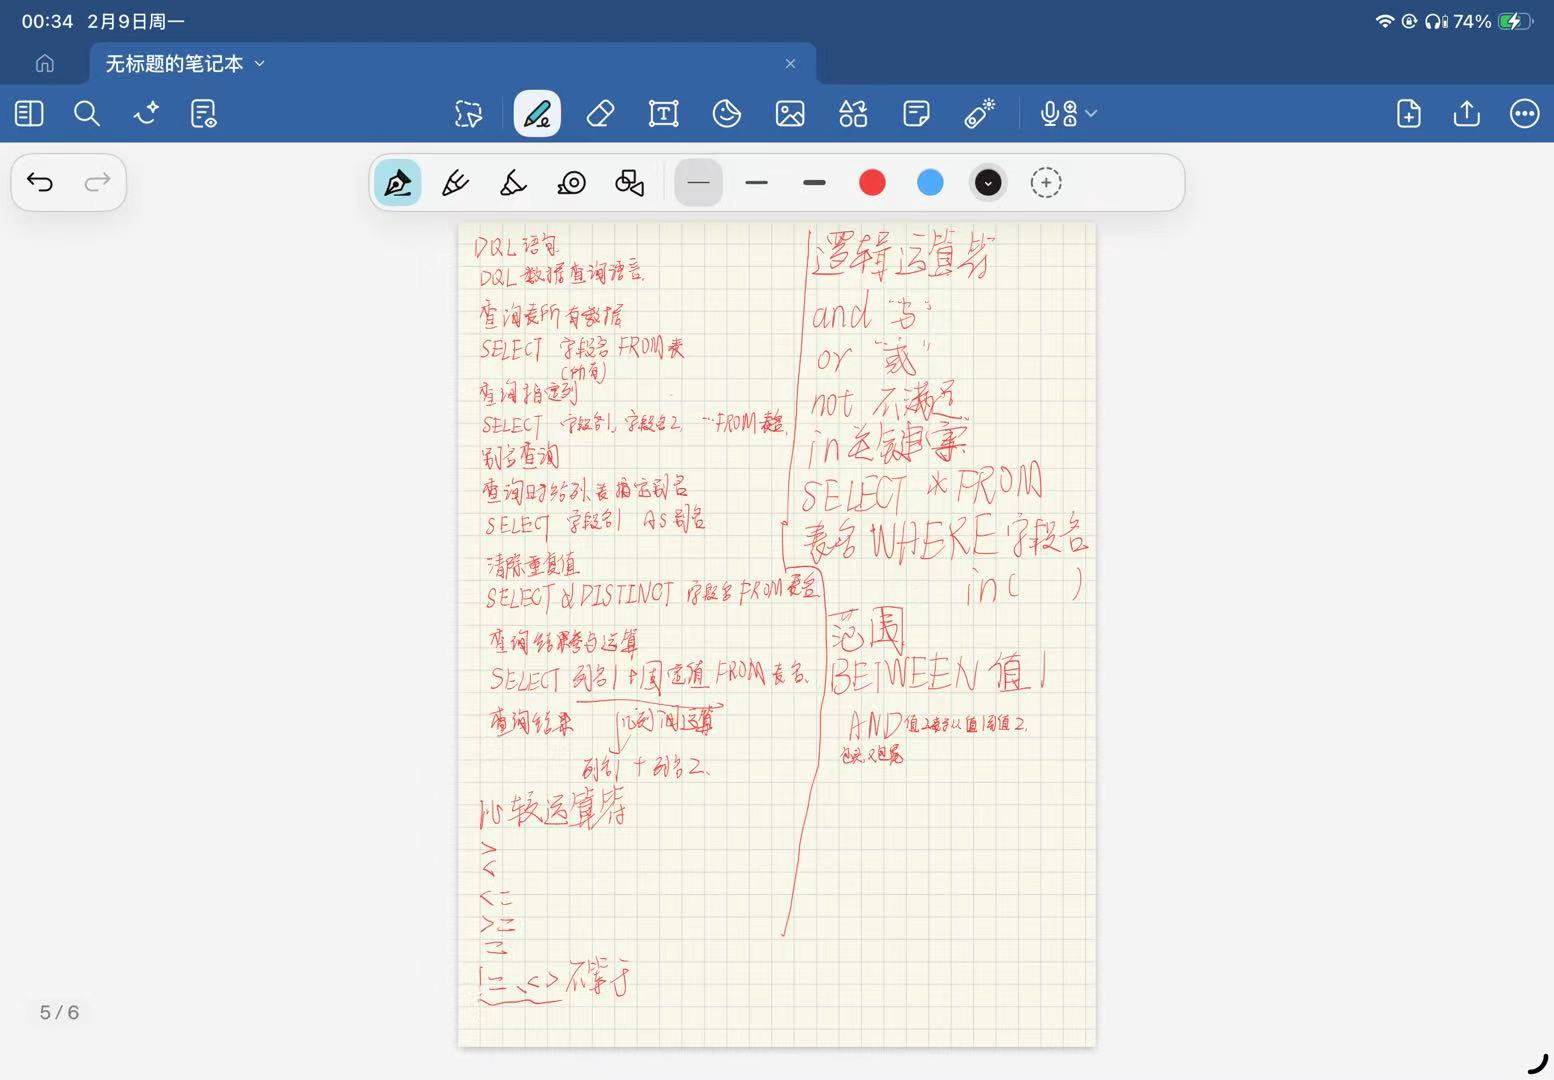 00:34 2月9日周一
74%
无标题的笔记本
DQL语句
DQL数据查询语言
查询表所有数据
SELECT 字段名 FROM表
(所有)
查询指定列
SELECT 字段名1, 字段名2, …FROM表名
别名查询
查询时给列、表指定别名
SELECT 字段名1 AS别名
清除重复值
SELECT DISTINCT 字段名FROM表名
查询结果参与运算
SELECT 列名1+固定值 FROM表名
查询结果 列间运算
列名1+列名2
比较运算符
>
<
<=
>=
=
!=、<>不等于
逻辑运算符
and "与"
or "或"
not 不满足
in关键字
SELECT * FROM
表名WHERE字段名
in( )
范围
BETWEEN 值1
AND值2 值1到值2,
包头又包尾
5/6